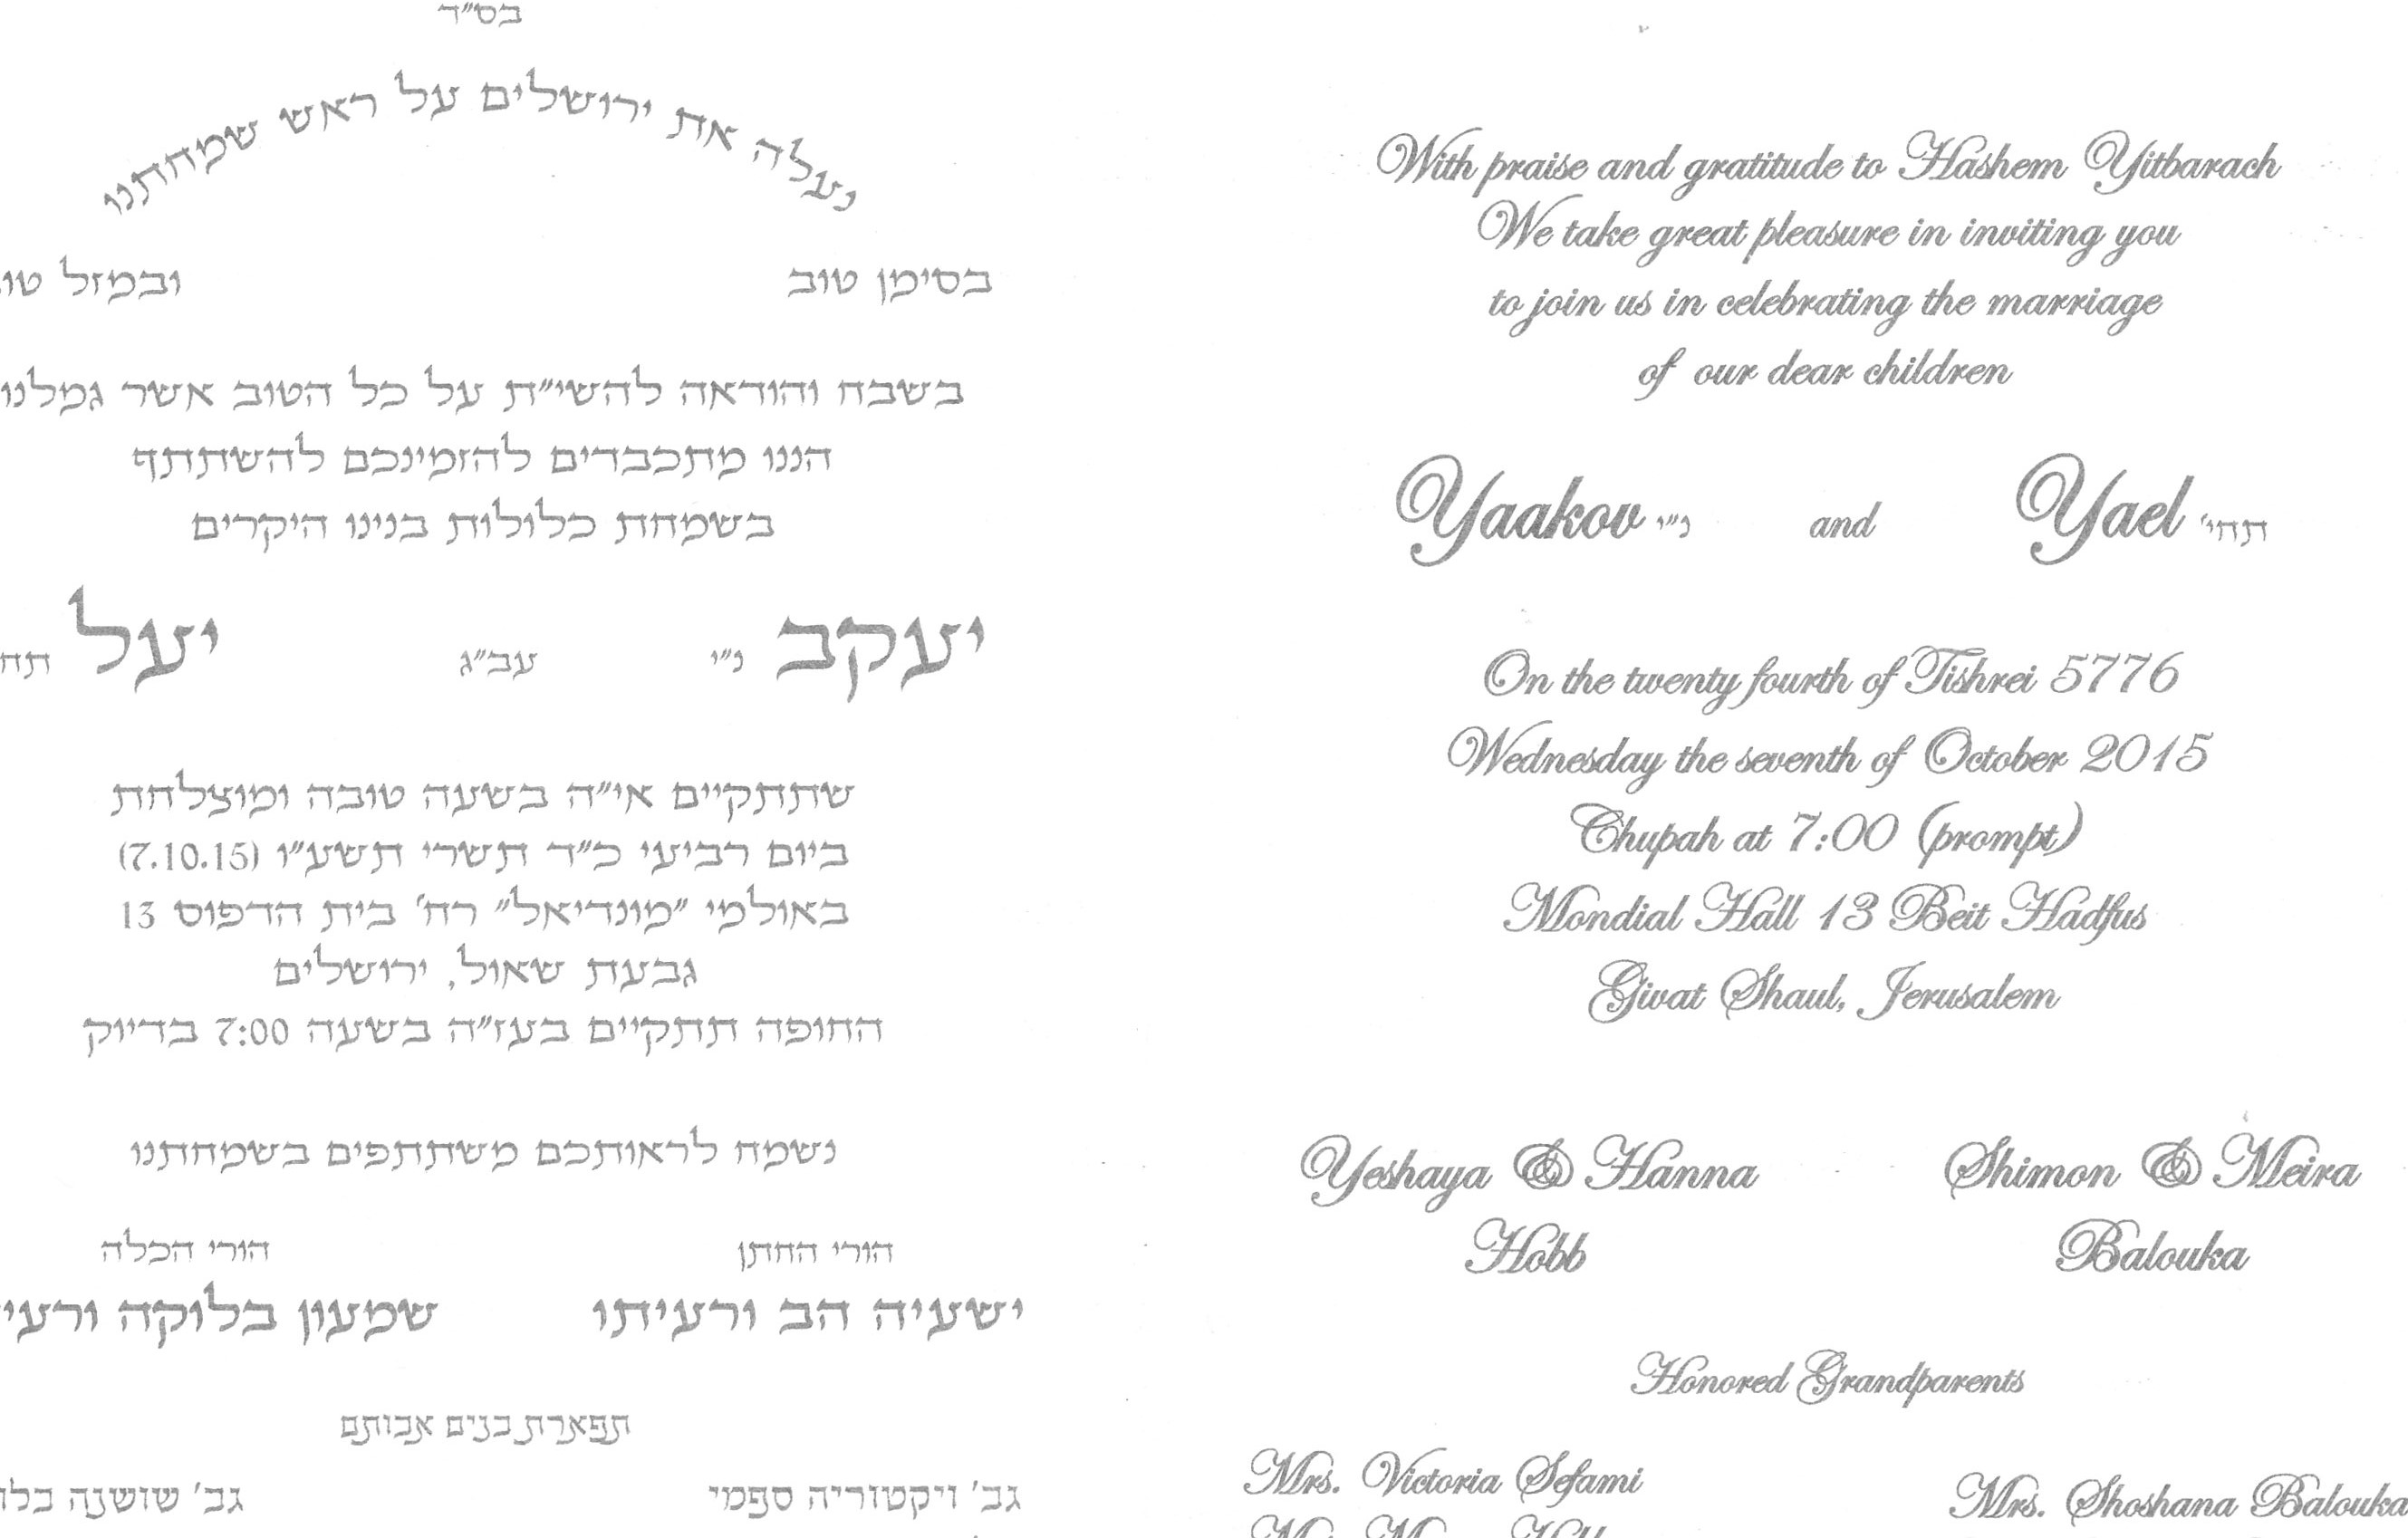 בס"ד
נעלה את ירושלים על ראש שמחתנו
בסימן טוב ובמזל
בשבח והודאה להשי"ת על כל הטוב אשר גמלנו
הננו מתכבדים להזמינכם להשתתף
בשמחת כלולות בנינו היקרים
יעקב נ"י עב"ג יעל
שתתקיים אי"ה בשעה טובה ומוצלחת
ביום רביעי כ"ד תשרי תשע"ו (7.10.15)
באולמי "מונדיאל" רח' בית הדפוס 13
גבעת שאול, ירושלים
החופה תתקיים בעז"ה בשעה 7:00 בדיוק
נשמח לראותכם משתתפים בשמחתנו
הורי החתן הורי הכלה
ישעיה הב ורעיתו שמעון בלוקה
תפארת בנים אבותם
גב' ויקטוריה ספמי גב' שושנה
With praise and gratitude to Hashem Yitbarach
We take great pleasure in inviting you
to join us in celebrating the marriage
of our dear children
Yaakov נ"י and Yael תחי'
On the twenty fourth of Tishrei 5776
Wednesday the seventh of October 2015
Chupah at 7:00 (prompt)
Mondial Hall 13 Beit Hadfus
Givat Shaul, Jerusalem
Yeshaya & Hanna Shimon & Meira
Hobb Balouka
Honored Grandparents
Mrs. Victoria Sefami Mrs. Shoshana Balouka